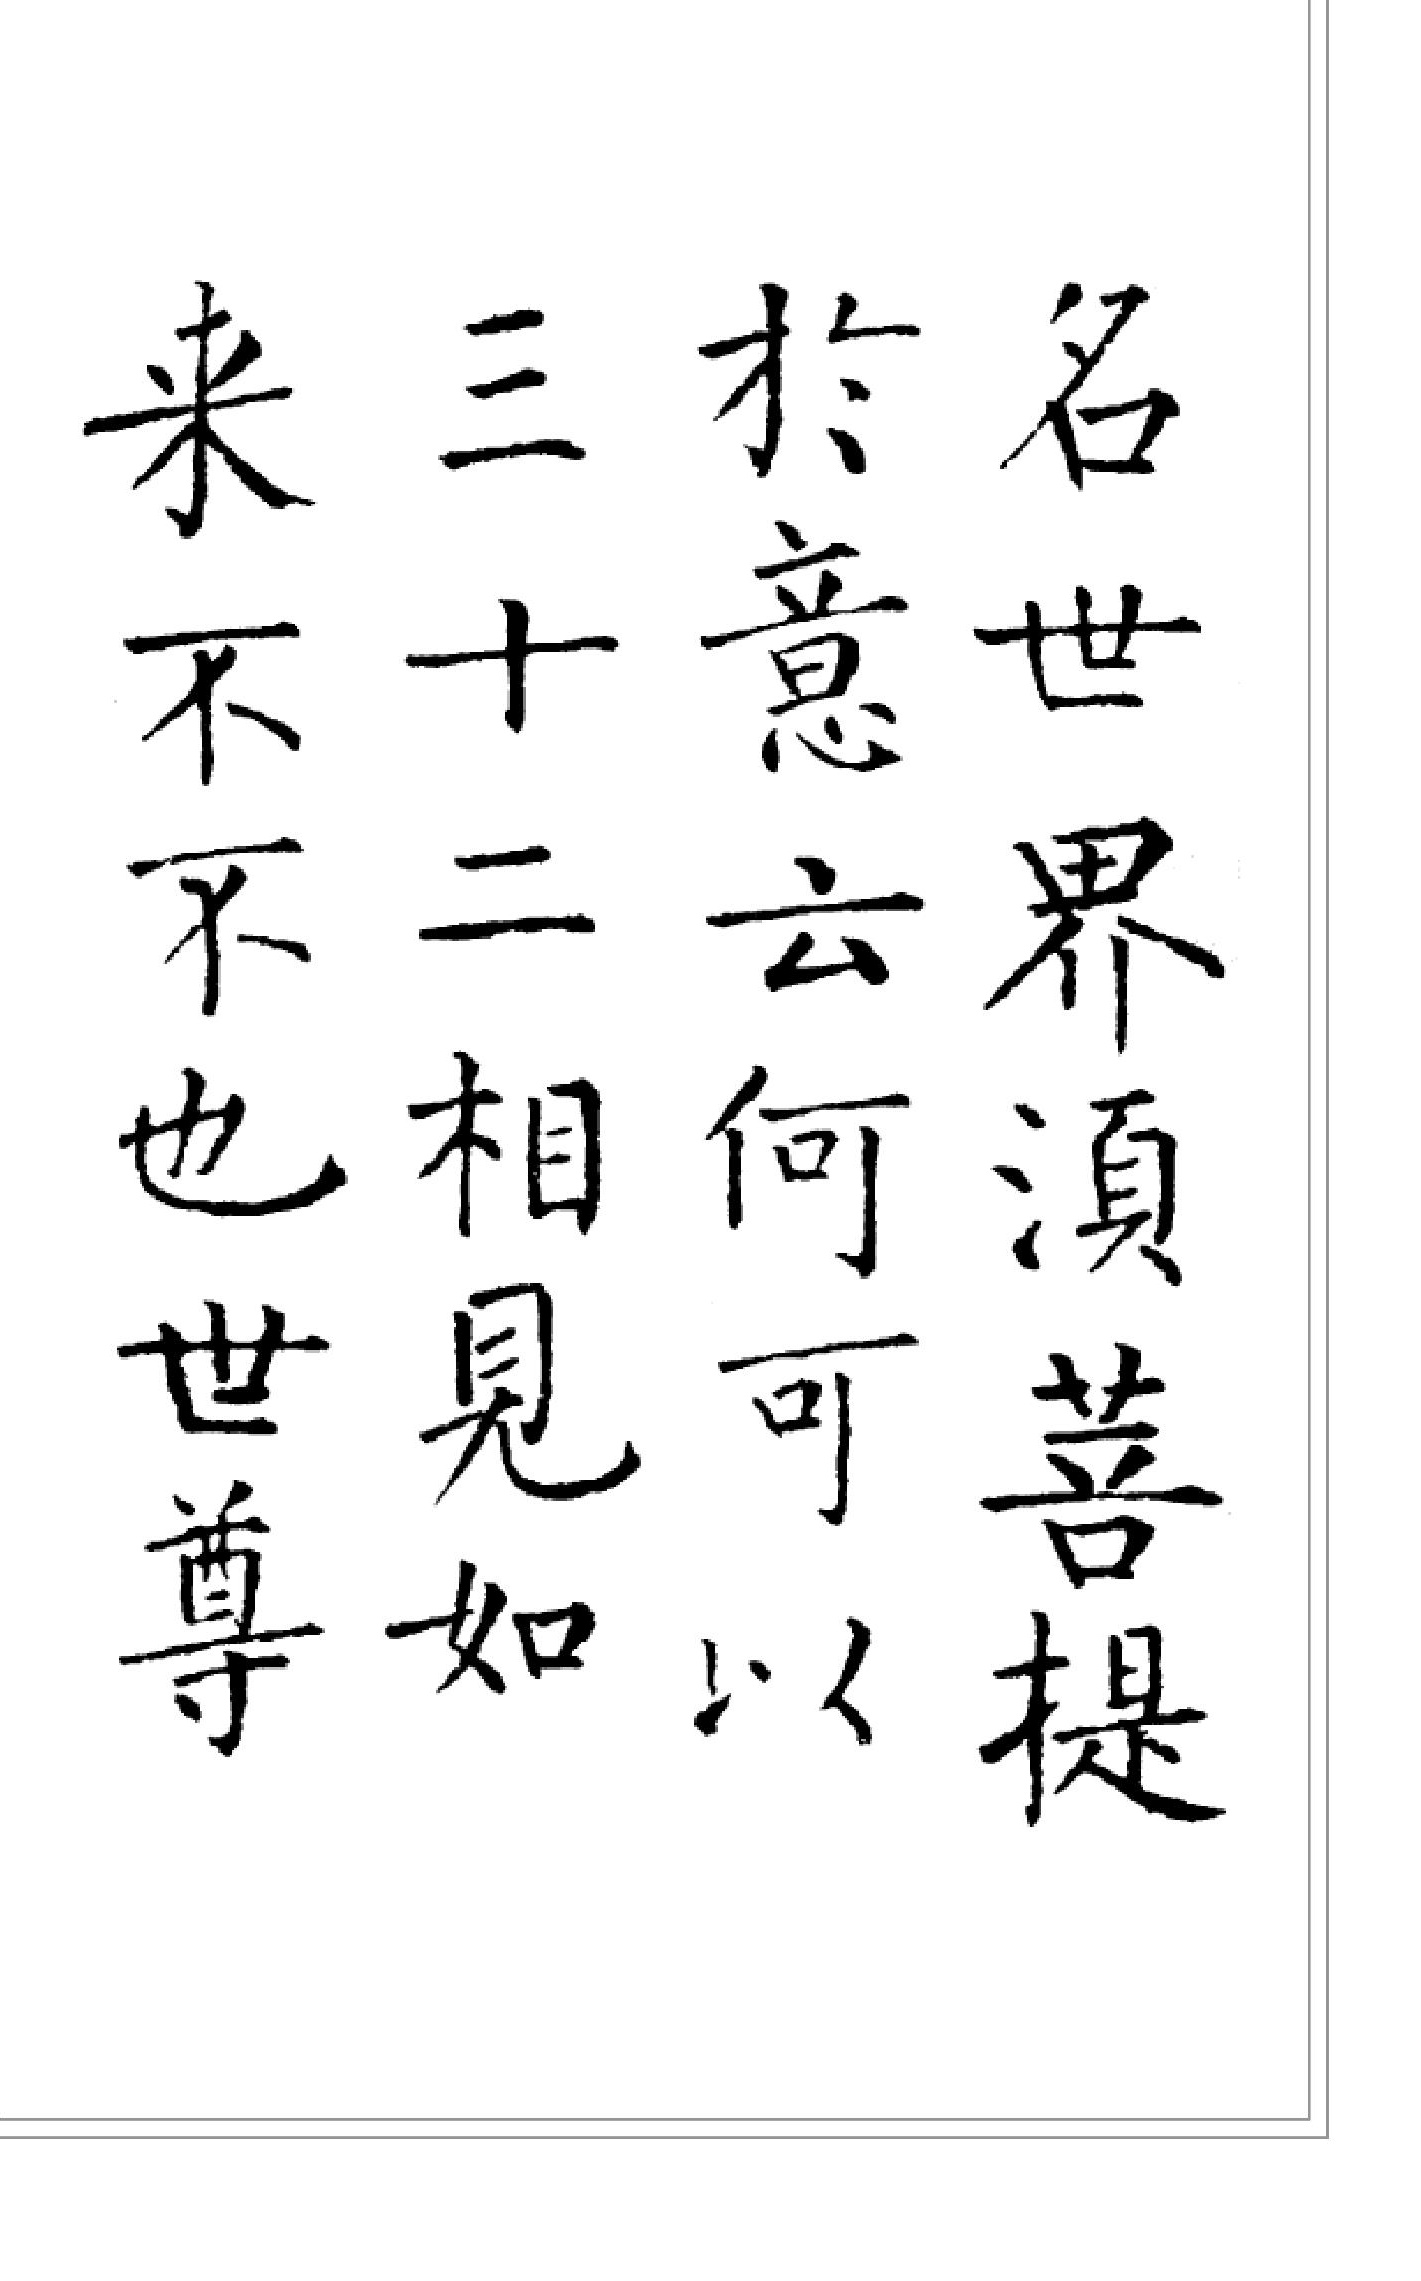 名世界湏菩提
於意云何可以
三十二相見如
来不不也世尊